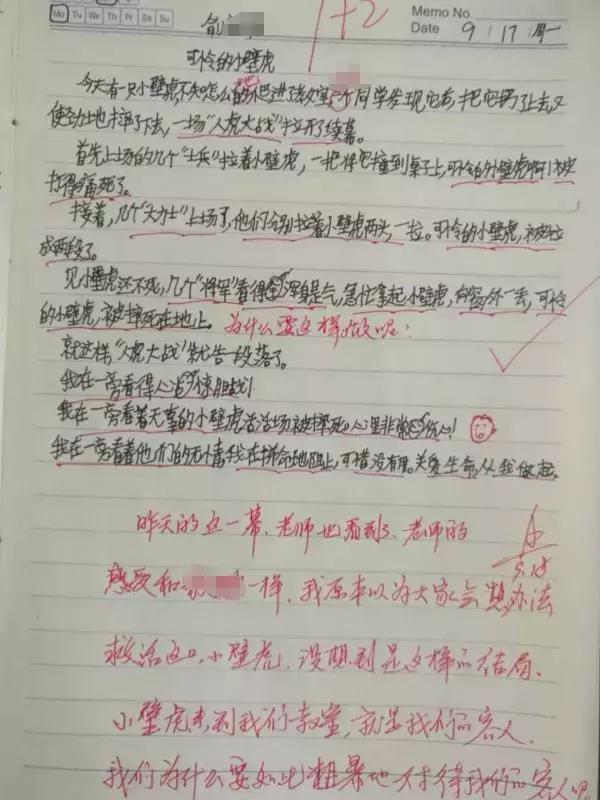 Mo Tu We Th Fr Sa Su
Memo No.
Date 9/17 周一
1+2
可怜的小壁虎
今天有一只小壁虎不知怎么的爬进了教室 个同学发现它后,把它捉了上去,又
使劲地摔了下去,一场“人虎大战”拉开了续幕。
首先上场的几个“士兵”拉着小壁虎,一把将它撞到桌子上,可怜的小壁虎啊!被
打得痛死了。
接着,几个“大力士”上场了,他们分别拉着小壁虎两头,一拉。可怜的小壁虎,被拉
成两段了。
见小壁虎还不死,几个“将军”看得浑身是气,急忙拿起小壁虎,向窗外一丢,可怜
的小壁虎,被摔死在地上。为什么要这样做呢?
就这样,“人虎大战”就告一段落了。
我在一旁看得心惊胆战!
我在一旁看着无辜的小壁虎活活被摔死,心里非常伤心!
我在一旁看着他们的无情,我在拼命地阻止,可惜没有用。关爱生命,从我做起。
昨天的这一幕,老师也看到了,老师的
感受和 一样,我原本以为大家会想办法
救活这只小壁虎,没想到是这样的结局。
小壁虎来到我们教室,就是我们的客人。
我们为什么要如此粗暴地对待我们的客人呢